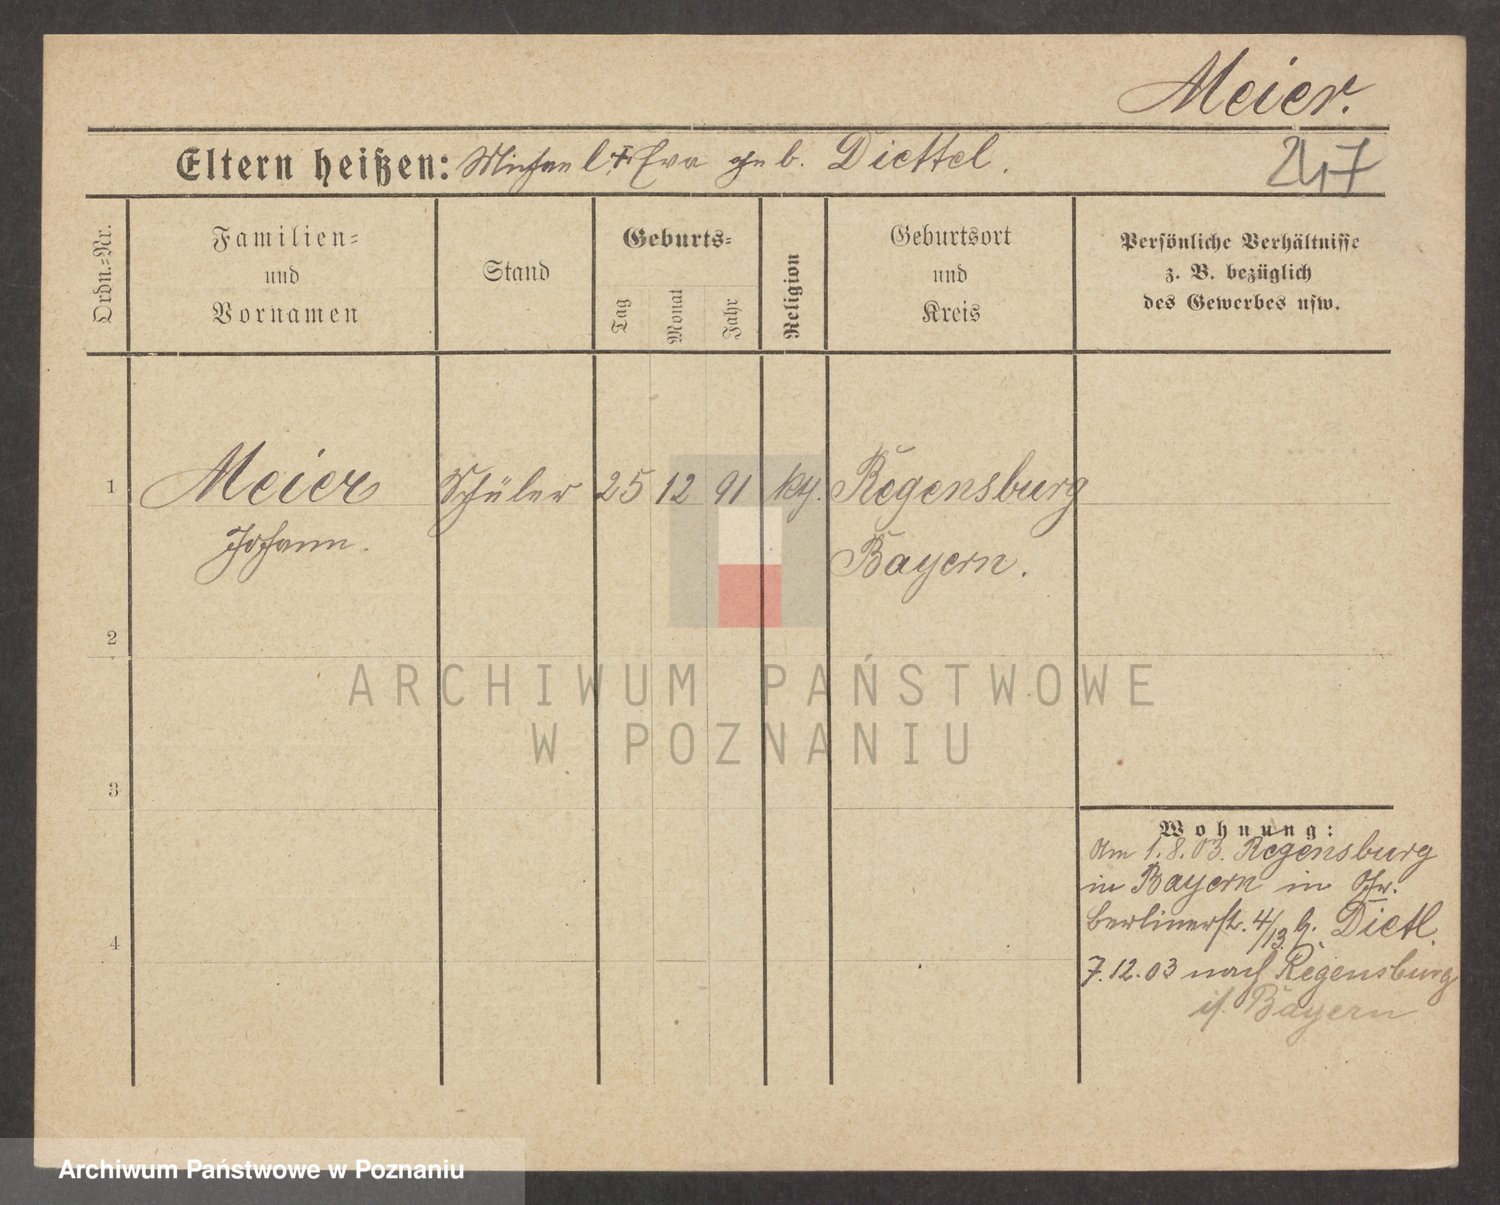 Meier.
Eltern heißen: Michael + Eva geb. Diettel.
247
Ordn.=Nr.
Familien=
und
Vornamen
Stand
Geburts=
Tag
Monat
Jahr
Religion
Geburtsort
und
Kreis
Persönliche Verhältnisse
z. B. bezüglich
des Gewerbes usw.
1 Meier Schüler 25 12 91 Regensburg
Johann. Bayern.
2
3
4
Wohnung:
Am 1.8.03. Regensburg
in Bayern in
Berlinerst. 4/13 b. Dietl.
7.12.03 nach Regensburg
i/. Bayern
ARCHIWUM PAŃSTWOWE
W POZNANIU
Archiwum Państwowe w Poznaniu